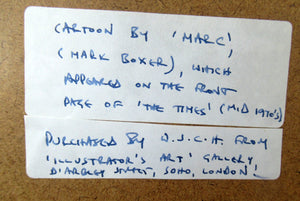 CARTOON BY 'MARC',
(MARK BOXER), WHICH
APPEARED ON THE FRONT
PAGE OF 'THE TIMES' (MID 1970'S)
PURCHASED BY D.J.C.H. FROM
'ILLUSTRATOR'S ART' GALLERY,
D'ARBLAY STREET, SOHO, LONDON